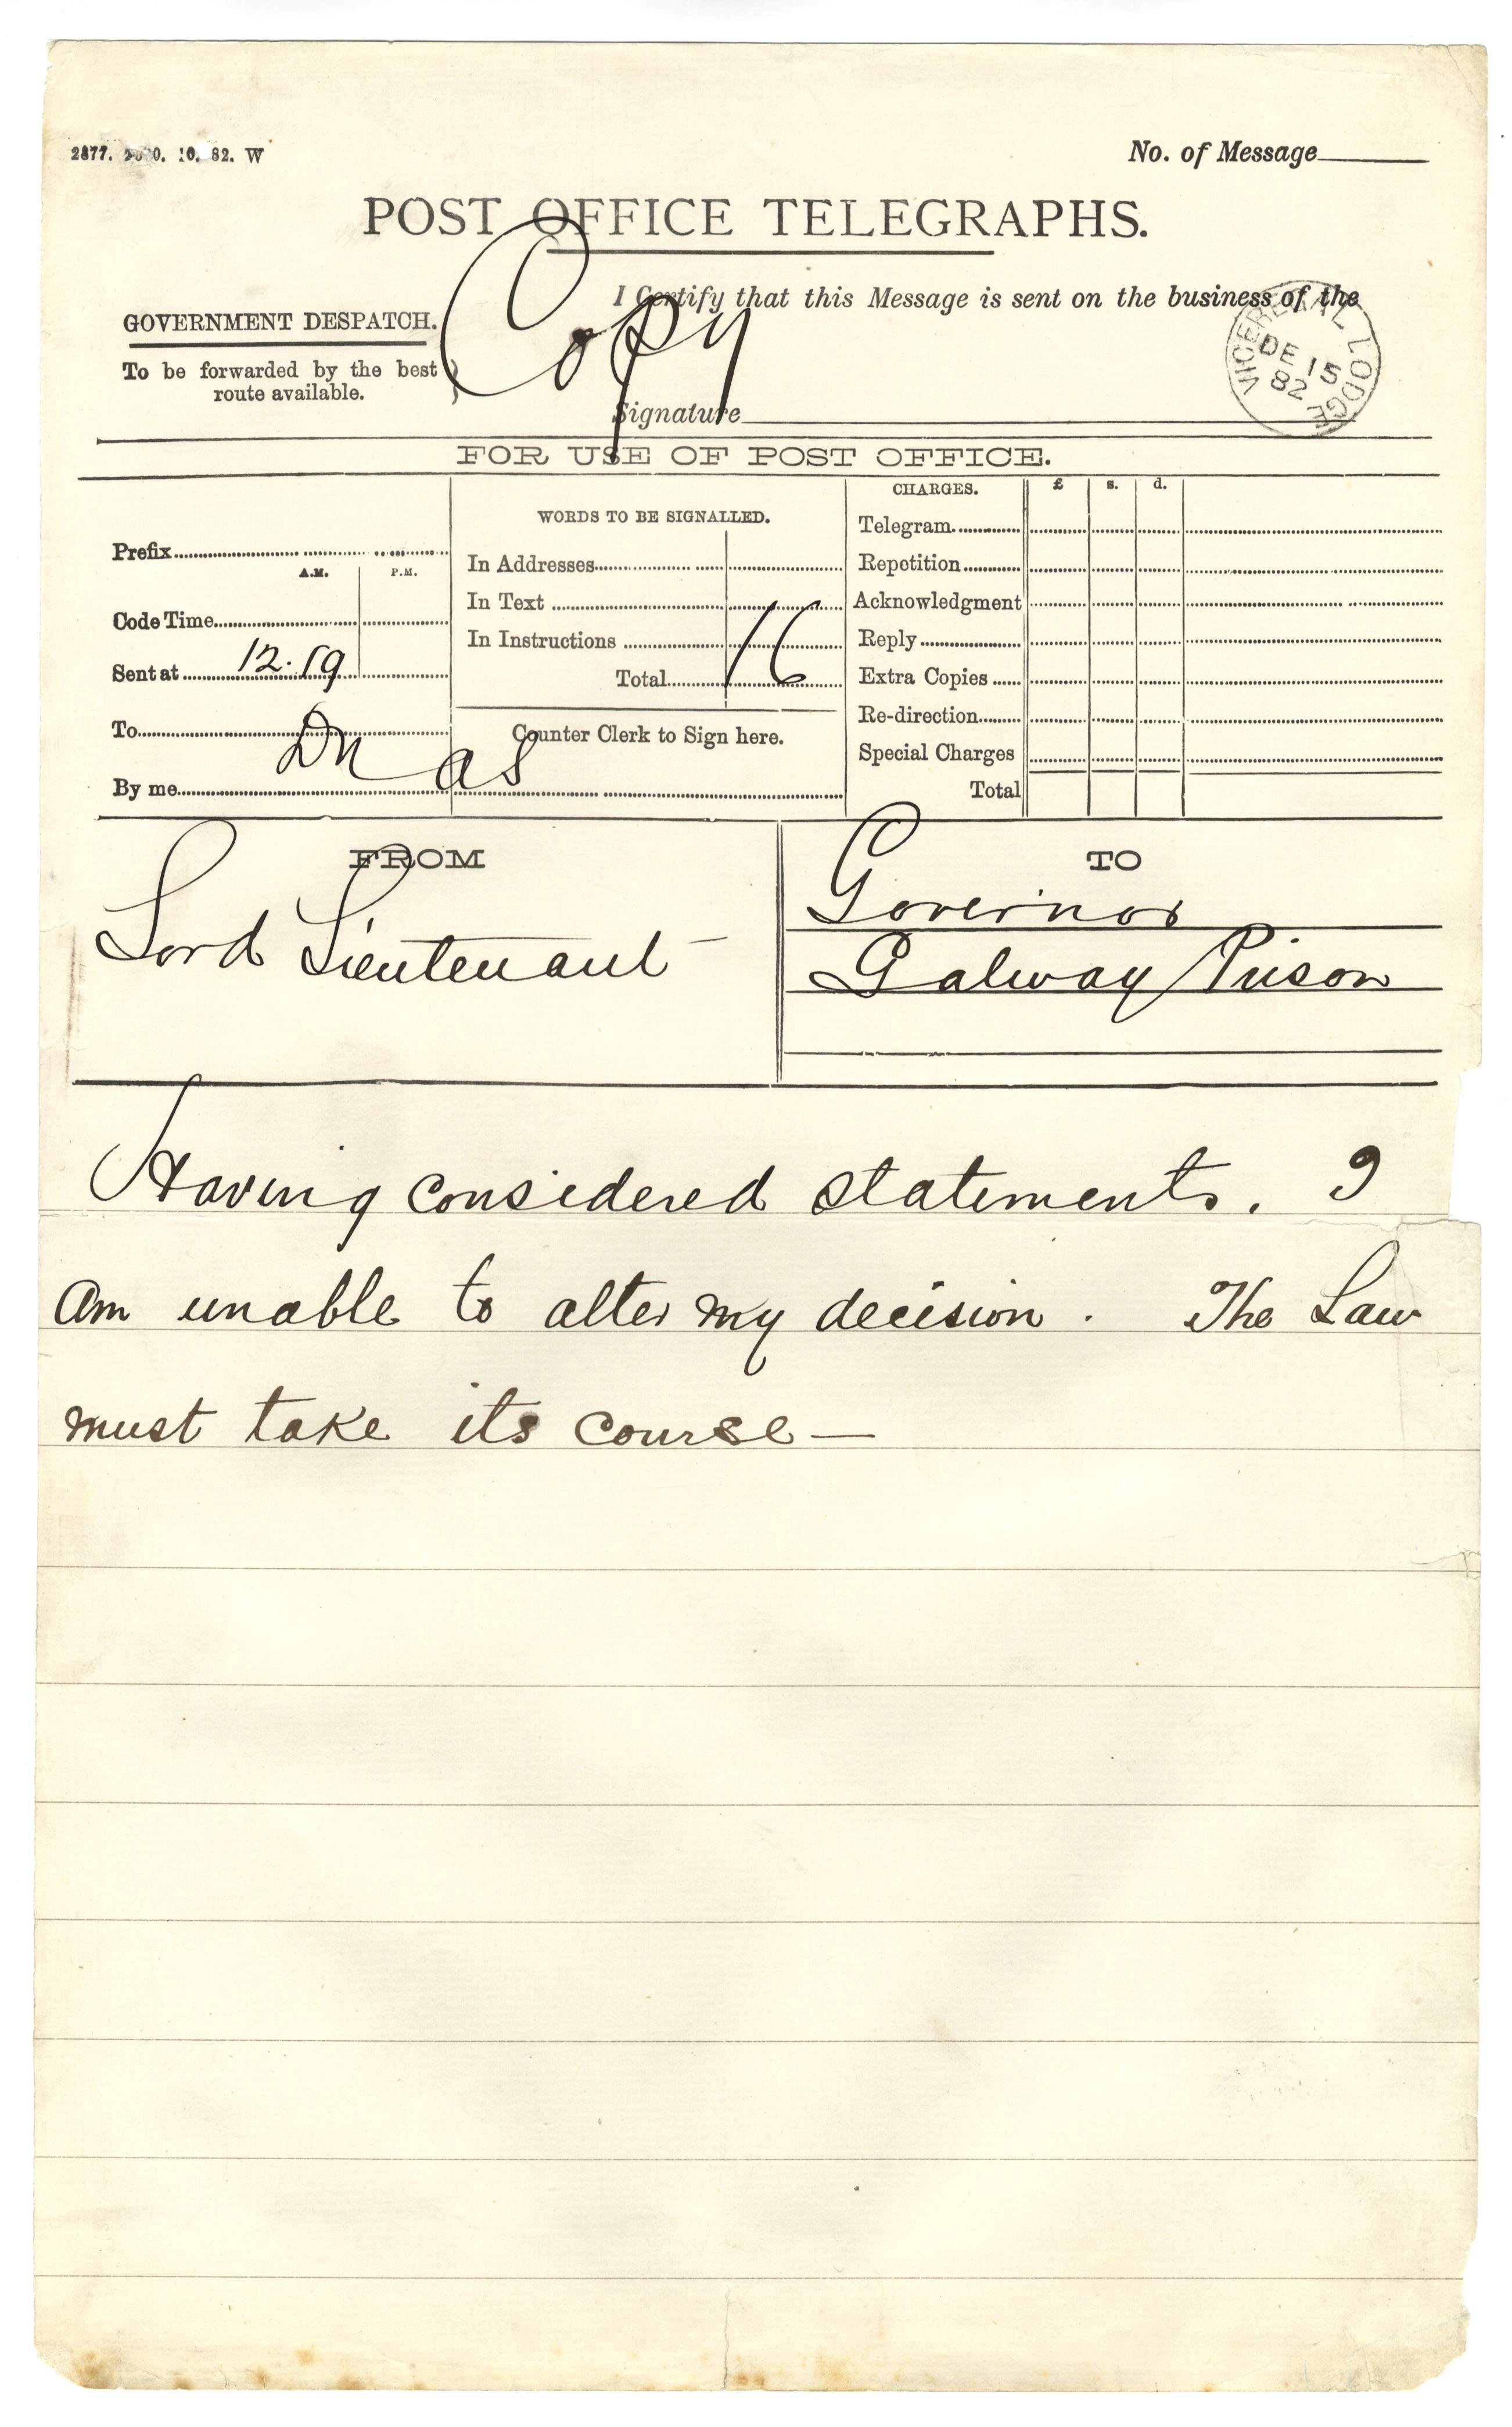 No. of Message
POST OFFICE TELEGRAPHS.
Copy
I Certify that this Message is sent on the business of the
GOVERNMENT DESPATCH.
To be forwarded by the best
route available.
Signature
VICEREGAL LODGE
DE 15
82
FOR USE OF POST OFFICE.
Prefix
A.M. P.M.
Code Time
Sent at 12.19
To
By me
WORDS TO BE SIGNALLED.
In Addresses
In Text
In Instructions
Total 16
Counter Clerk to Sign here.
CHARGES. £ s. d.
Telegram
Repetition
Acknowledgment
Reply
Extra Copies
Re-direction
Special Charges
Total
FROM
Lord Lieutenant
TO
Governor
Galway Prison
Having considered statements. I
am unable to alter my decision. The Law
must take its course —